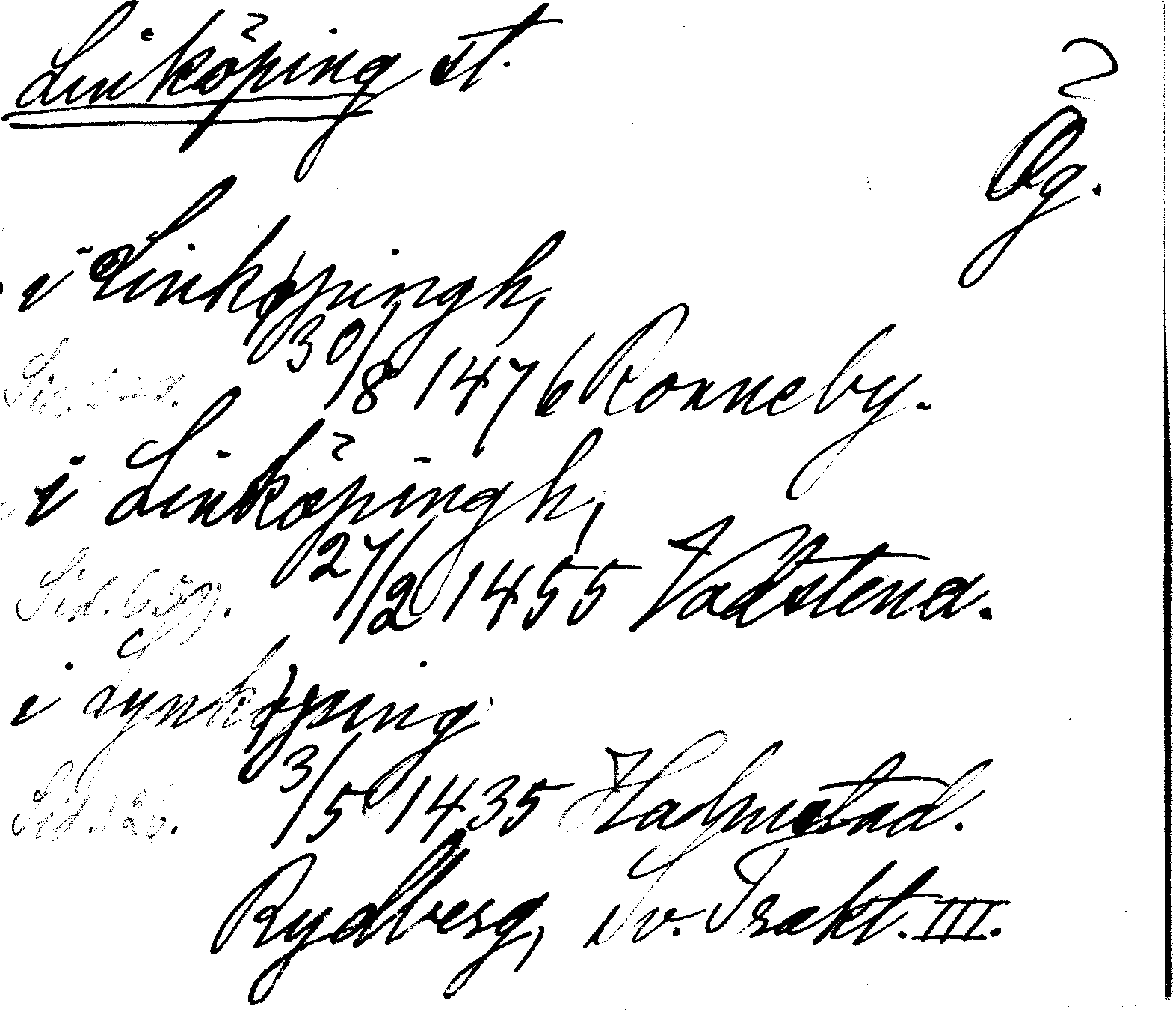 Linköping st.
Ög.
i Linkøpingh,
30/8 1476 Ronneby.
i Linköpingh,
Sid. 27/2 1455 Vadstena.
i Lynkøping
Sid. 3/5 1435 Halmstad.
Rydberg, Sv. Trakt. III.